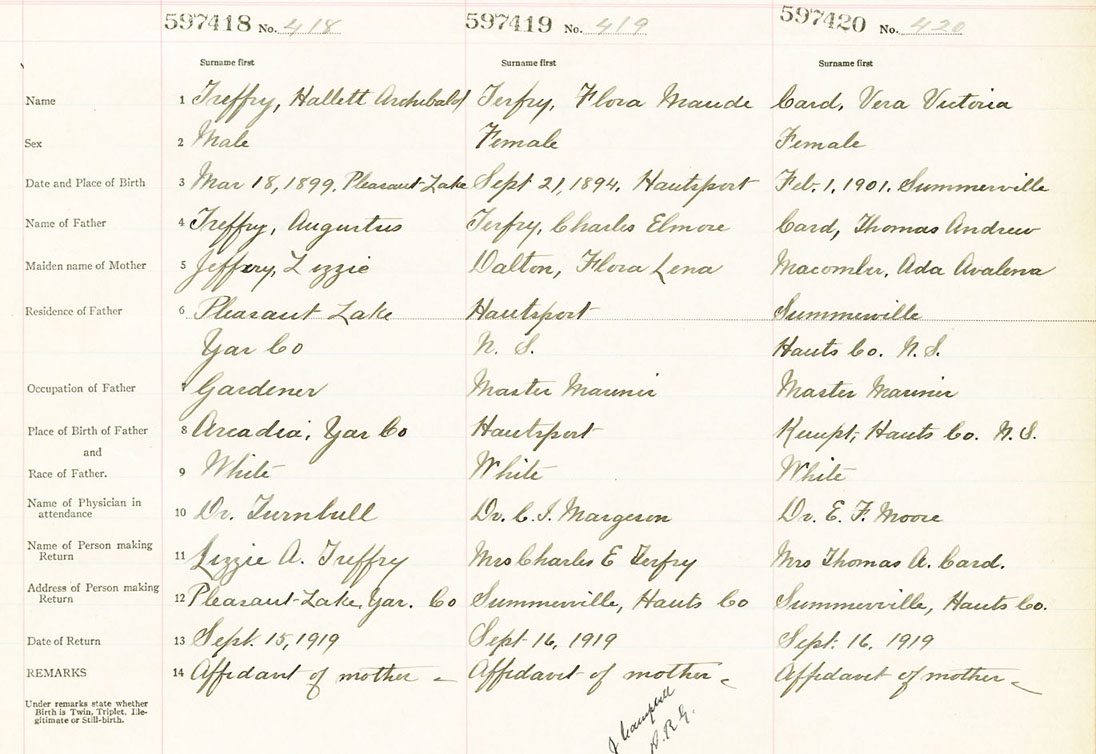 597418 No. 418 597419 No. 419 597420 No. 420
Surname first Surname first Surname first
Name 1 Treffry, Hallett Archibald Terfry, Flora Maude Card, Vera Victoria
Sex 2 Male Female Female
Date and Place of Birth 3 Mar 18, 1899, Pleasant Lake Sept 21, 1894, Hantsport Feb. 1, 1901, Summerville
Name of Father 4 Treffry, Augustus Terfry, Charles Elmore Card, Thomas Andrew
Maiden name of Mother 5 Jeffery, Lizzie Dalton, Flora Lena Macomber, Ada Avalena
Residence of Father 6 Pleasant Lake Hantsport Summerville
Yar Co N. S. Hants Co. N. S.
Occupation of Father 7 Gardener Master Mariner Master Mariner
Place of Birth of Father 8 Arcadia, Yar Co Hantsport Kempt, Hants Co. N. S.
and
Race of Father. 9 White White White
Name of Physician in
attendance 10 Dr. Turnbull Dr. C. I. Margeson Dr. E. F. Moore
Name of Person making
Return 11 Lizzie A. Treffry Mrs Charles E Terfry Mrs Thomas A. Card.
Address of Person making
Return 12 Pleasant Lake, Yar. Co Summerville, Hants Co Summerville, Hants Co.
Date of Return 13 Sept. 15, 1919 Sept 16, 1919 Sept. 16, 1919
REMARKS 14 Affidavit of mother Affidavit of mother Affidavit of mother
Under remarks state whether
Birth is Twin, Triplet, Ille-
gitimate or Still-birth.
J Campbell
D. R. G.